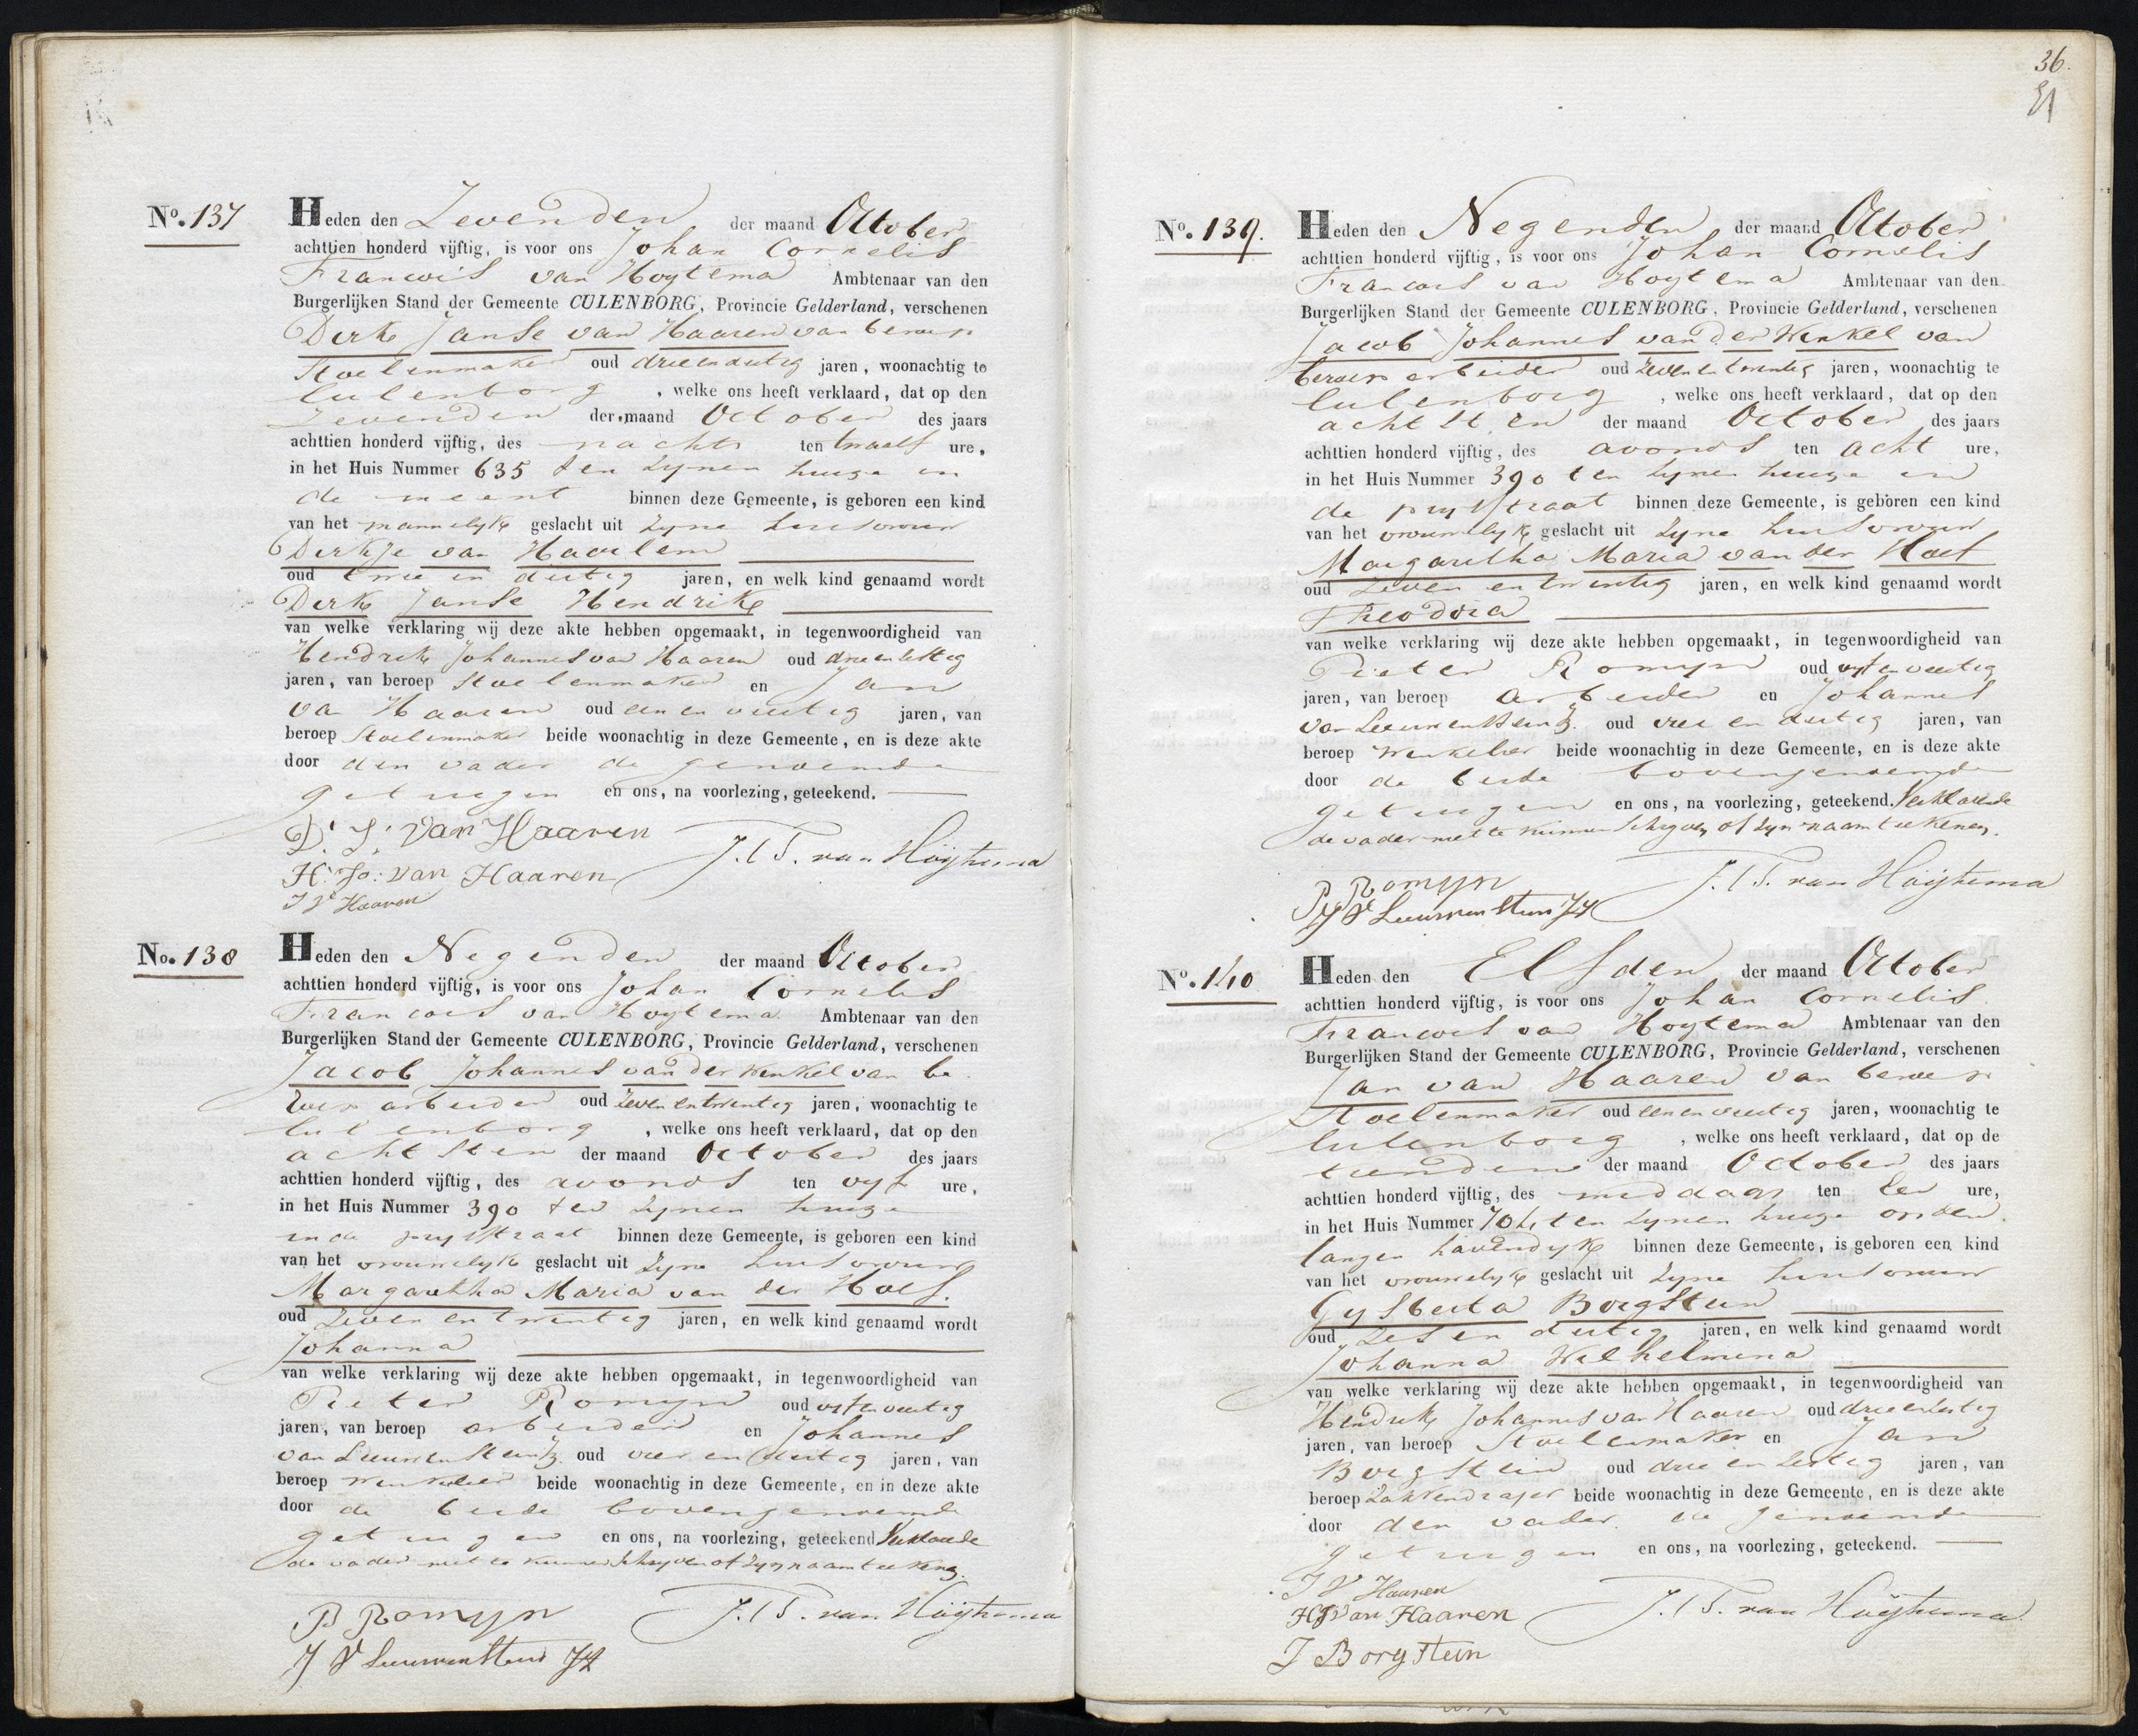 No. 137
Heden den Zevenden der maand October
achttien honderd vijftig, is voor ons Johan Cornelis
Francois van Hoytema Ambtenaar van den
Burgerlijken Stand der Gemeente CULENBORG, Provincie Gelderland, verschenen
Dirk Janse van Haaren van beroep
Stoelenmaker oud drieendertig jaren, woonachtig te
Culenborg, welke ons heeft verklaard, dat op den
Zevenden der maand October des jaars
achttien honderd vijftig, des nachts ten twaalf ure,
in het Huis Nummer 635 ten zynen huize in
de meent binnen deze Gemeente, is geboren een kind
van het mannelyk geslacht uit zyne huisvrouw
Derkje van Haarlem
oud twee en dertig jaren, en welk kind genaamd wordt
Derk Janse Hendrik
van welke verklaring wij deze akte hebben opgemaakt, in tegenwoordigheid van
Hendrik Johannes van Haaren oud drie en sestig
jaren, van beroep Stoelenmaker en Jan
van Haaren oud een en veertig jaren, van
beroep Stoelenmaker beide woonachtig in deze Gemeente, en is deze akte
door den vader de genoemde
getuigen en ons, na voorlezing, geteekend.
D. J. van Haaren
H. Jo: van Haaren J. C. F. van Hoijtema
J V Haaren
No. 138
Heden den Negenden der maand October
achttien honderd vijftig, is voor ons Johan Cornelis
Francois van Hoytema Ambtenaar van den
Burgerlijken Stand der Gemeente CULENBORG, Provincie Gelderland, verschenen
Jacob Johannes van der Winkel van be
roep arbeider oud zeven en twintig jaren, woonachtig te
Culenborg, welke ons heeft verklaard, dat op den
achtsten der maand October des jaars
achttien honderd vijftig, des avonds ten vyf ure,
in het Huis Nummer 390 ten zynen huize
in de prysstraat binnen deze Gemeente, is geboren een kind
van het vrouwelyk geslacht uit zyne huisvrouw
Margaretha Maria van der Hoef.
oud zeven en twintig jaren, en welk kind genaamd wordt
Johanna
van welke verklaring wij deze akte hebben opgemaakt, in tegenwoordigheid van
Pieter Romyn oud vyf en veertig
jaren, van beroep arbeider en Johannes
van Leeuwenstein Jz. oud vier en dertig jaren, van
beroep winkelier beide woonachtig in deze Gemeente, en in deze akte
door de beide bovengenoemde
getuigen en ons, na voorlezing, geteekend Verklarende
de vader niet te kunnen schryven of zyn naam teekenen.
P Romyn J. C. F. van Hoijtema
J V Leeuwenstein JZ
36.
No. 139.
Heden den Negenden der maand October
achttien honderd vijftig, is voor ons Johan Cornelis
Francois van Hoytema Ambtenaar van den
Burgerlijken Stand der Gemeente CULENBORG, Provincie Gelderland, verschenen
Jacob Johannes van der Winkel van
beroep arbeider oud zeven en twintig jaren, woonachtig te
Culenborg, welke ons heeft verklaard, dat op den
achtsten der maand October des jaars
achttien honderd vijftig, des avonds ten acht ure,
in het Huis Nummer 390 ten zynen huize in
de prysstraat binnen deze Gemeente, is geboren een kind
van het vrouwelyk geslacht uit zyne huisvrouw
Margaretha Maria van der Hoef
oud zeven en twintig jaren, en welk kind genaamd wordt
Theodora
van welke verklaring wij deze akte hebben opgemaakt, in tegenwoordigheid van
Pieter Romyn oud vyf en veertig
jaren, van beroep arbeider en Johannes
van Leeuwenstein Jz. oud vier en dertig jaren, van
beroep winkelier beide woonachtig in deze Gemeente, en is deze akte
door de beide bovengenoemde
getuigen en ons, na voorlezing, geteekend. Verklarende
de vader niet te kunnen schryven of zyn naam teekenen.
P Romyn J. C. F. van Hoijtema
J V Leeuwenstein JZ
No. 140
Heden den Elfden der maand October
achttien honderd vijftig, is voor ons Johan Cornelis
Francois van Hoytema Ambtenaar van den
Burgerlijken Stand der Gemeente CULENBORG, Provincie Gelderland, verschenen
Jan van Haaren van beroep
Stoelenmaker oud een en veertig jaren, woonachtig te
Culenborg, welke ons heeft verklaard, dat op de
tienden der maand October des jaars
achttien honderd vijftig, des middags ten een ure,
in het Huis Nummer ten zynen huize op den
langen havendyk binnen deze Gemeente, is geboren een kind
van het vrouwelyk geslacht uit zyne huisvrouw
Gysberta Borgstein
oud zes en dertig jaren, en welk kind genaamd wordt
Johanna Wilhelmina
van welke verklaring wij deze akte hebben opgemaakt, in tegenwoordigheid van
Hendrik Johannes van Haaren oud drie en sestig
jaren, van beroep Stoelenmaker en Jan
Borgstein oud drie en sestig jaren, van
beroep zakkendrager beide woonachtig in deze Gemeente, en is deze akte
door den vader de genoemde
getuigen en ons, na voorlezing, geteekend.
J V Haaren
HJ van Haaren J. C. F. van Hoijtema
J Borgstein